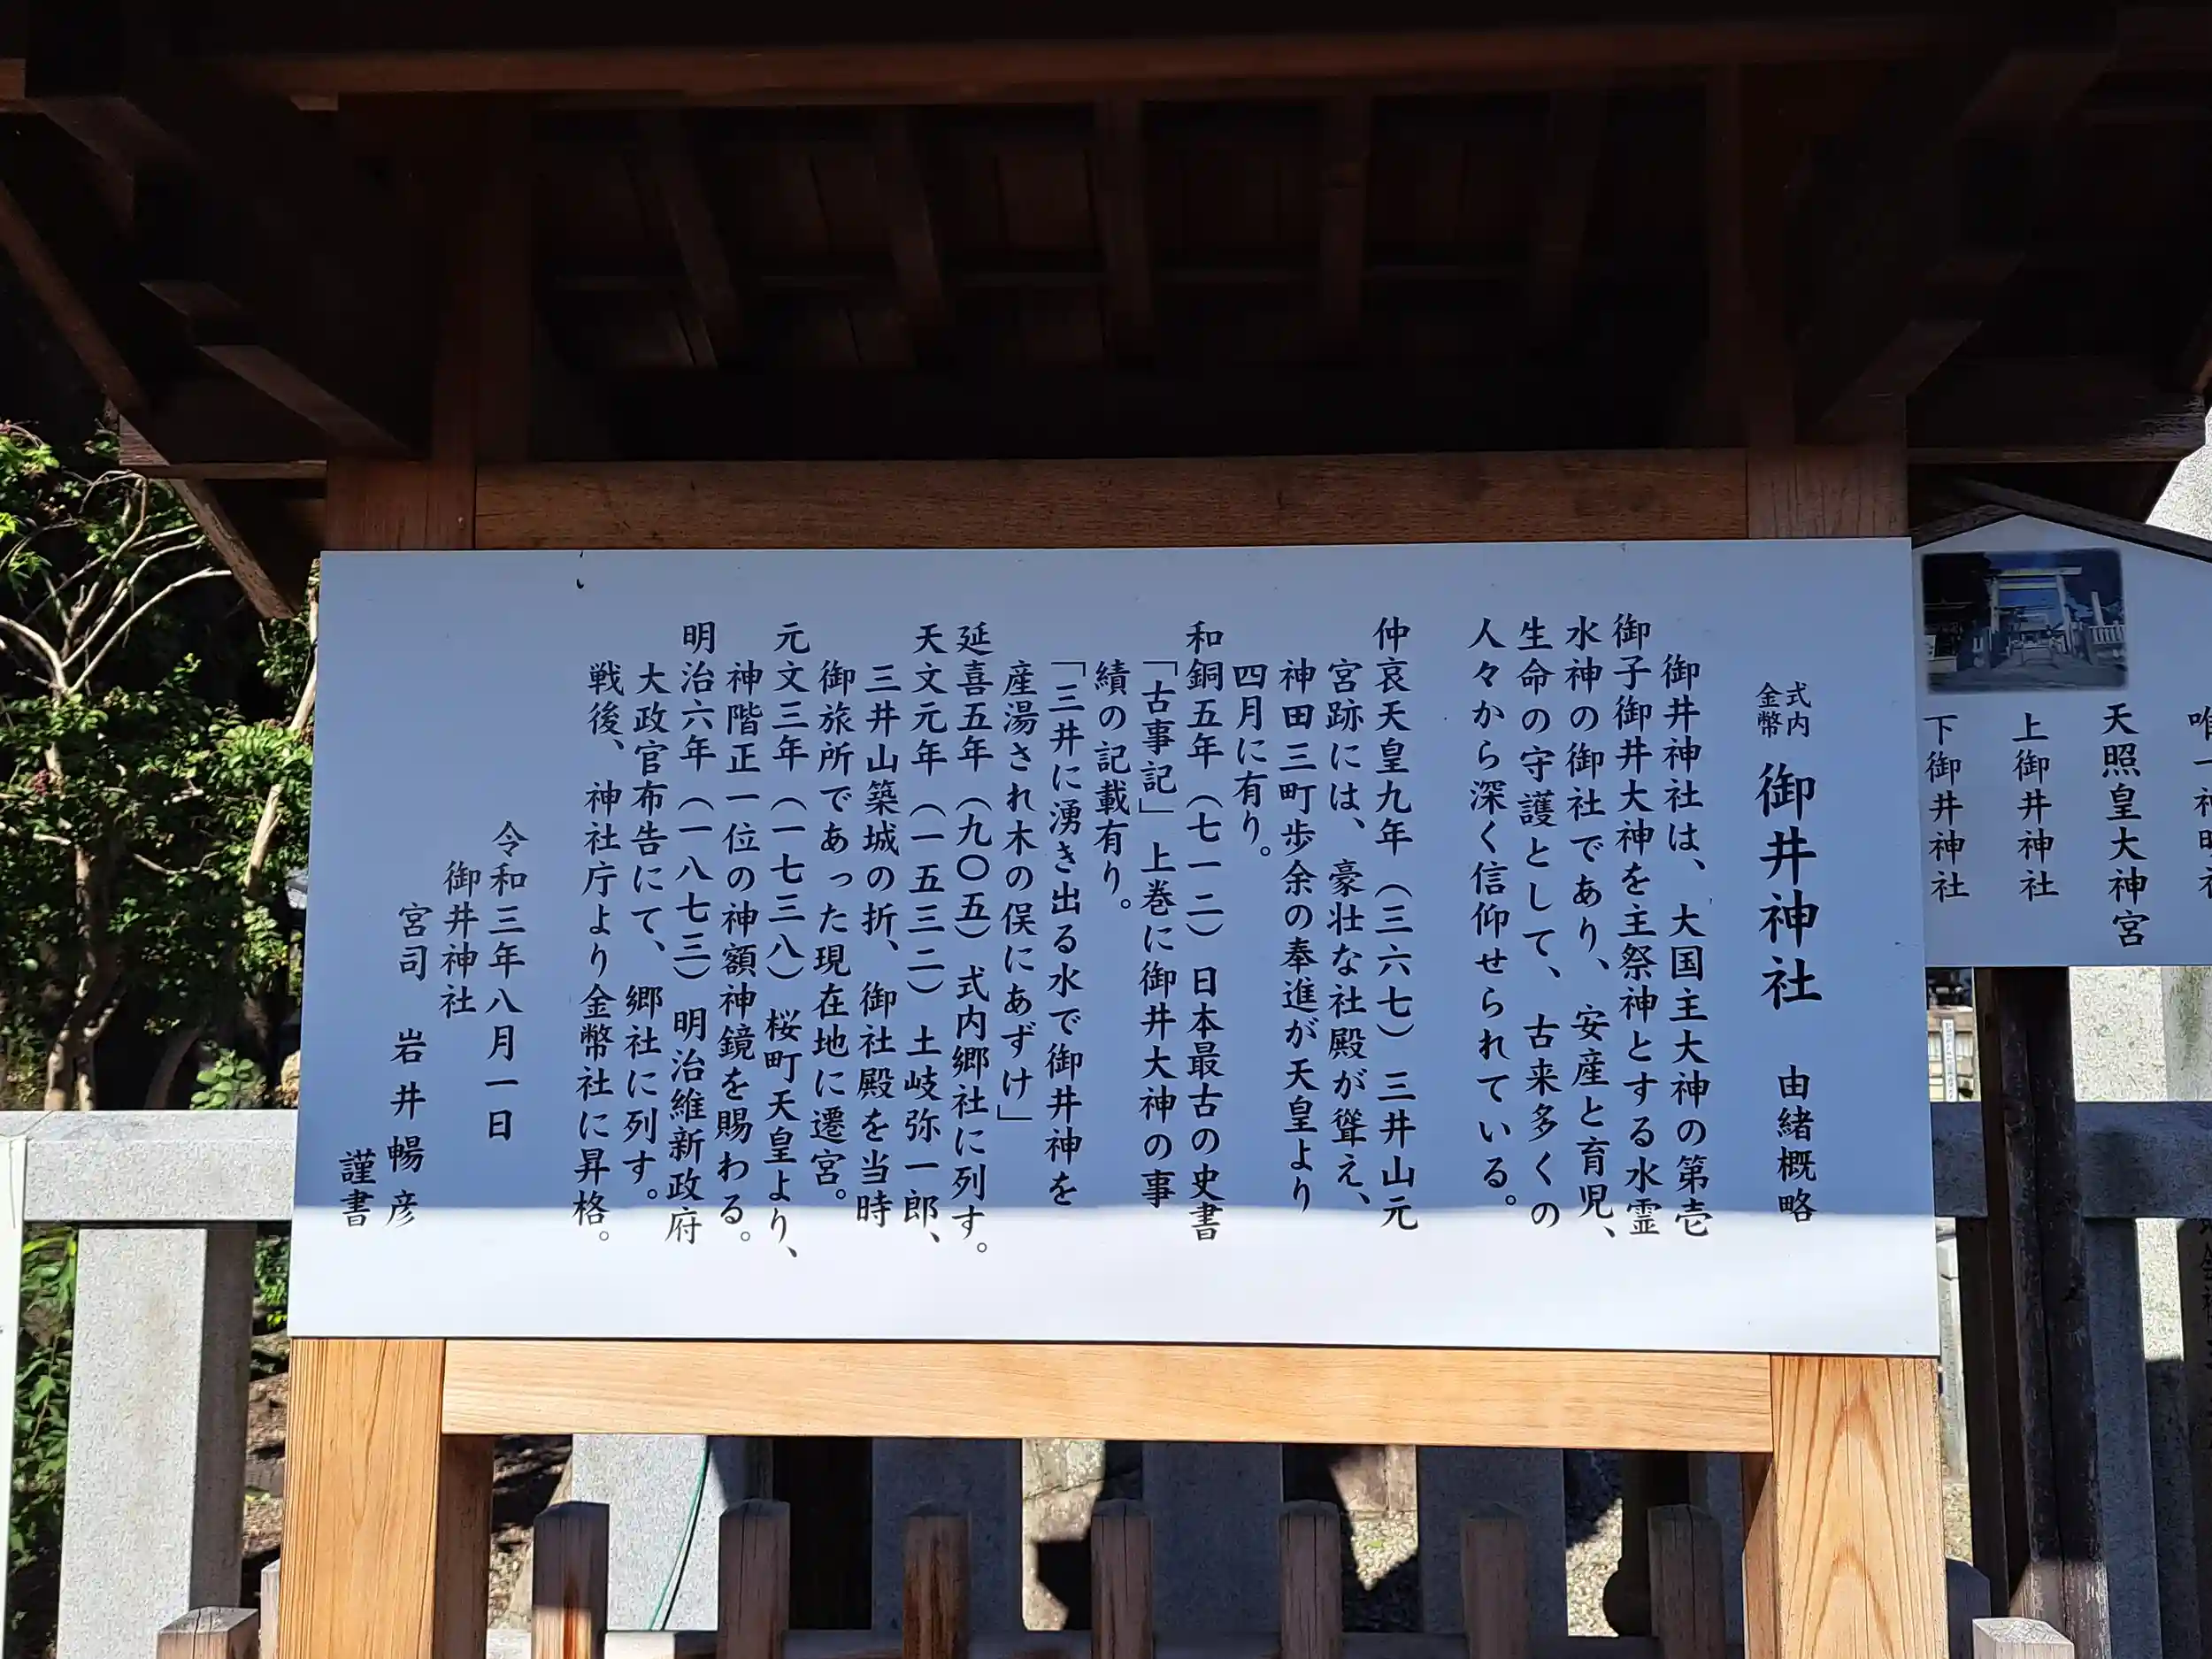 式内
金幣
御井神社 由緒概略
御井神社は、大国主大神の第壱
御子御井大神を主祭神とする水霊
水神の御社であり、安産と育児、
生命の守護として、古来多くの
人々から深く信仰せられている。
仲哀天皇九年（三六七）三井山元
宮跡には、豪壮な社殿が聳え、
神田三町歩余の奉進が天皇より
四月に有り。
和銅五年（七一二）日本最古の史書
「古事記」上巻に御井大神の事
績の記載有り。
「三井に湧き出る水で御井神を
産湯され木の俣にあずけ」
延喜五年（九〇五）式内郷社に列す。
天文元年（一五三二）土岐弥一郎、
三井山築城の折、御社殿を当時
御旅所であった現在地に遷宮。
元文三年（一七三八）桜町天皇より、
神階正一位の神額神鏡を賜わる。
明治六年（一八七三）明治維新政府
大政官布告にて、郷社に列す。
戦後、神社庁より金幣社に昇格。
令和三年八月一日
御井神社
宮司 岩井暢彦
謹書
天照皇大神宮
上御井神社
下御井神社